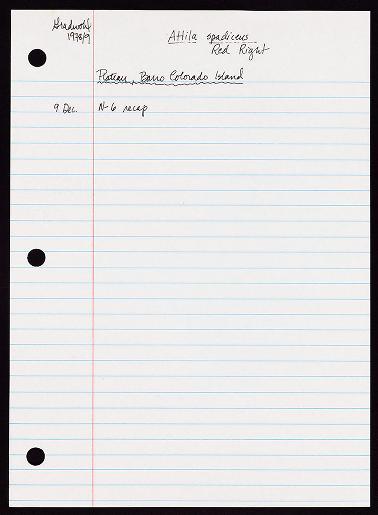 Gradwohl
1978/9
Attila spadiceus
Red Right
Plateau, Barro Colorado Island
9 Dec. N-6 recap